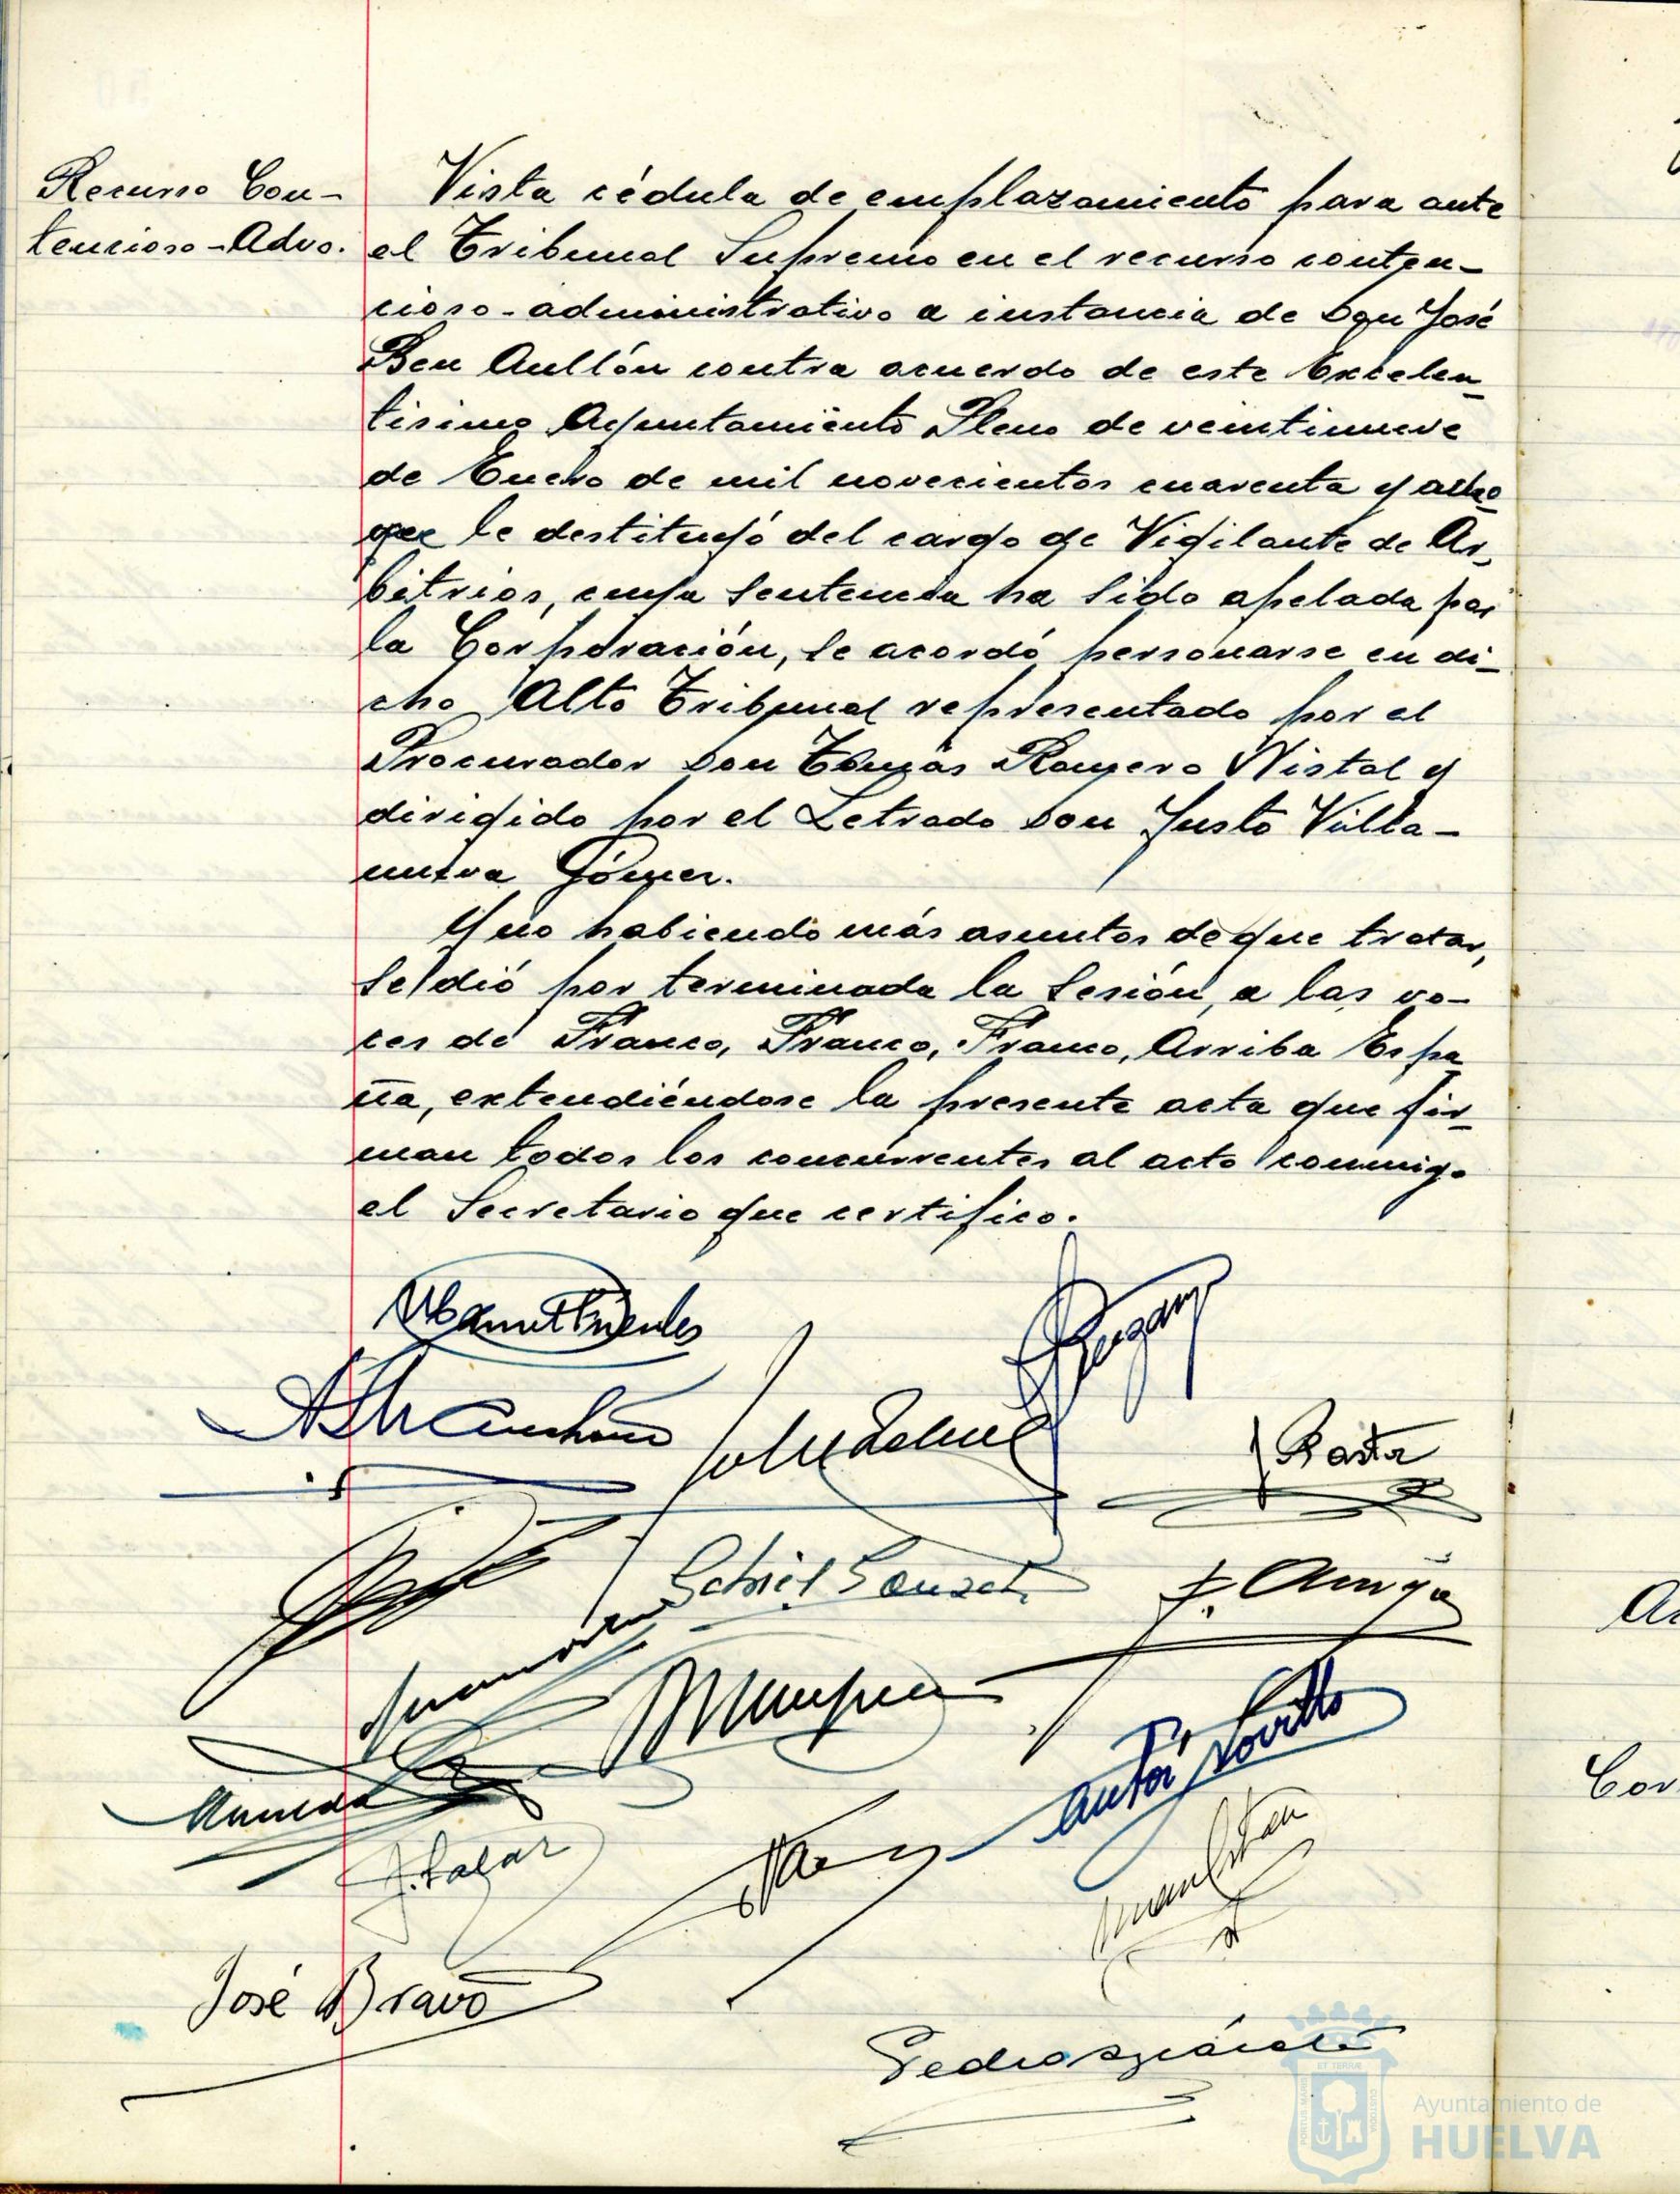 Recurso Con-
tencioso-Advo.
Vista cédula de emplazamiento para ante
el Tribunal Supremo en el recurso conten-
cioso-administrativo a instancia de Don José
Ben Aullón contra acuerdo de este Excelen-
tísimo Ayuntamiento Pleno de veintinueve
de Enero de mil novecientos cuarenta y ocho
que le destituyó del cargo de Vigilante de Ar-
bitrios, cuya sentencia ha sido apelada por
la Corporación, se acordó personarse en di-
cho Alto Tribunal representado por el
Procurador Don Tomás Romero Nistal y
dirigido por el Letrado Don Justo Villa-
nueva Gómez.
Y no habiendo más asuntos de que tratar,
se dió por terminada la sesión, a las vo-
ces de Franco, Franco, Franco, Arriba Espa-
ña, extendiéndose la presente acta que fir-
man todos los concurrentes al acto conmigo
el Secretario que certifico.
J. Pastor
José Bravo
ET TERRAE
PORTUS MARIS
CUSTODIA
Ayuntamiento de
HUELVA